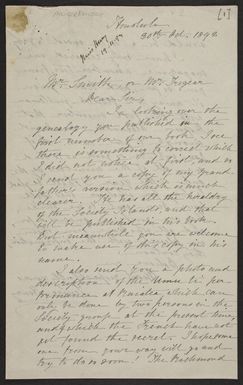 [1]
Honolulu
30th Oct. 1893
Mr. Smith, or Mr. Tregear
Dear Sir,
In looking over the
genealogy you published in the
first number of our book I see
there is something to correct which
I did not notice at first, and so
I send you a copy of my grand-
father's version which is much
clearer. He has all the heraldry
of the Society Islands, and that
will be published in his book.
But meanwhile you are welcome
to make use of this copy in his
name.
I also send you a photo and
description of the Umu ti per-
formance at Raiatea which can
only be done by two persons in the
Society group at the present time,
and which the French have not
yet found the secret. I hope some
one from your way will go and
try to do so soon! The Richmond